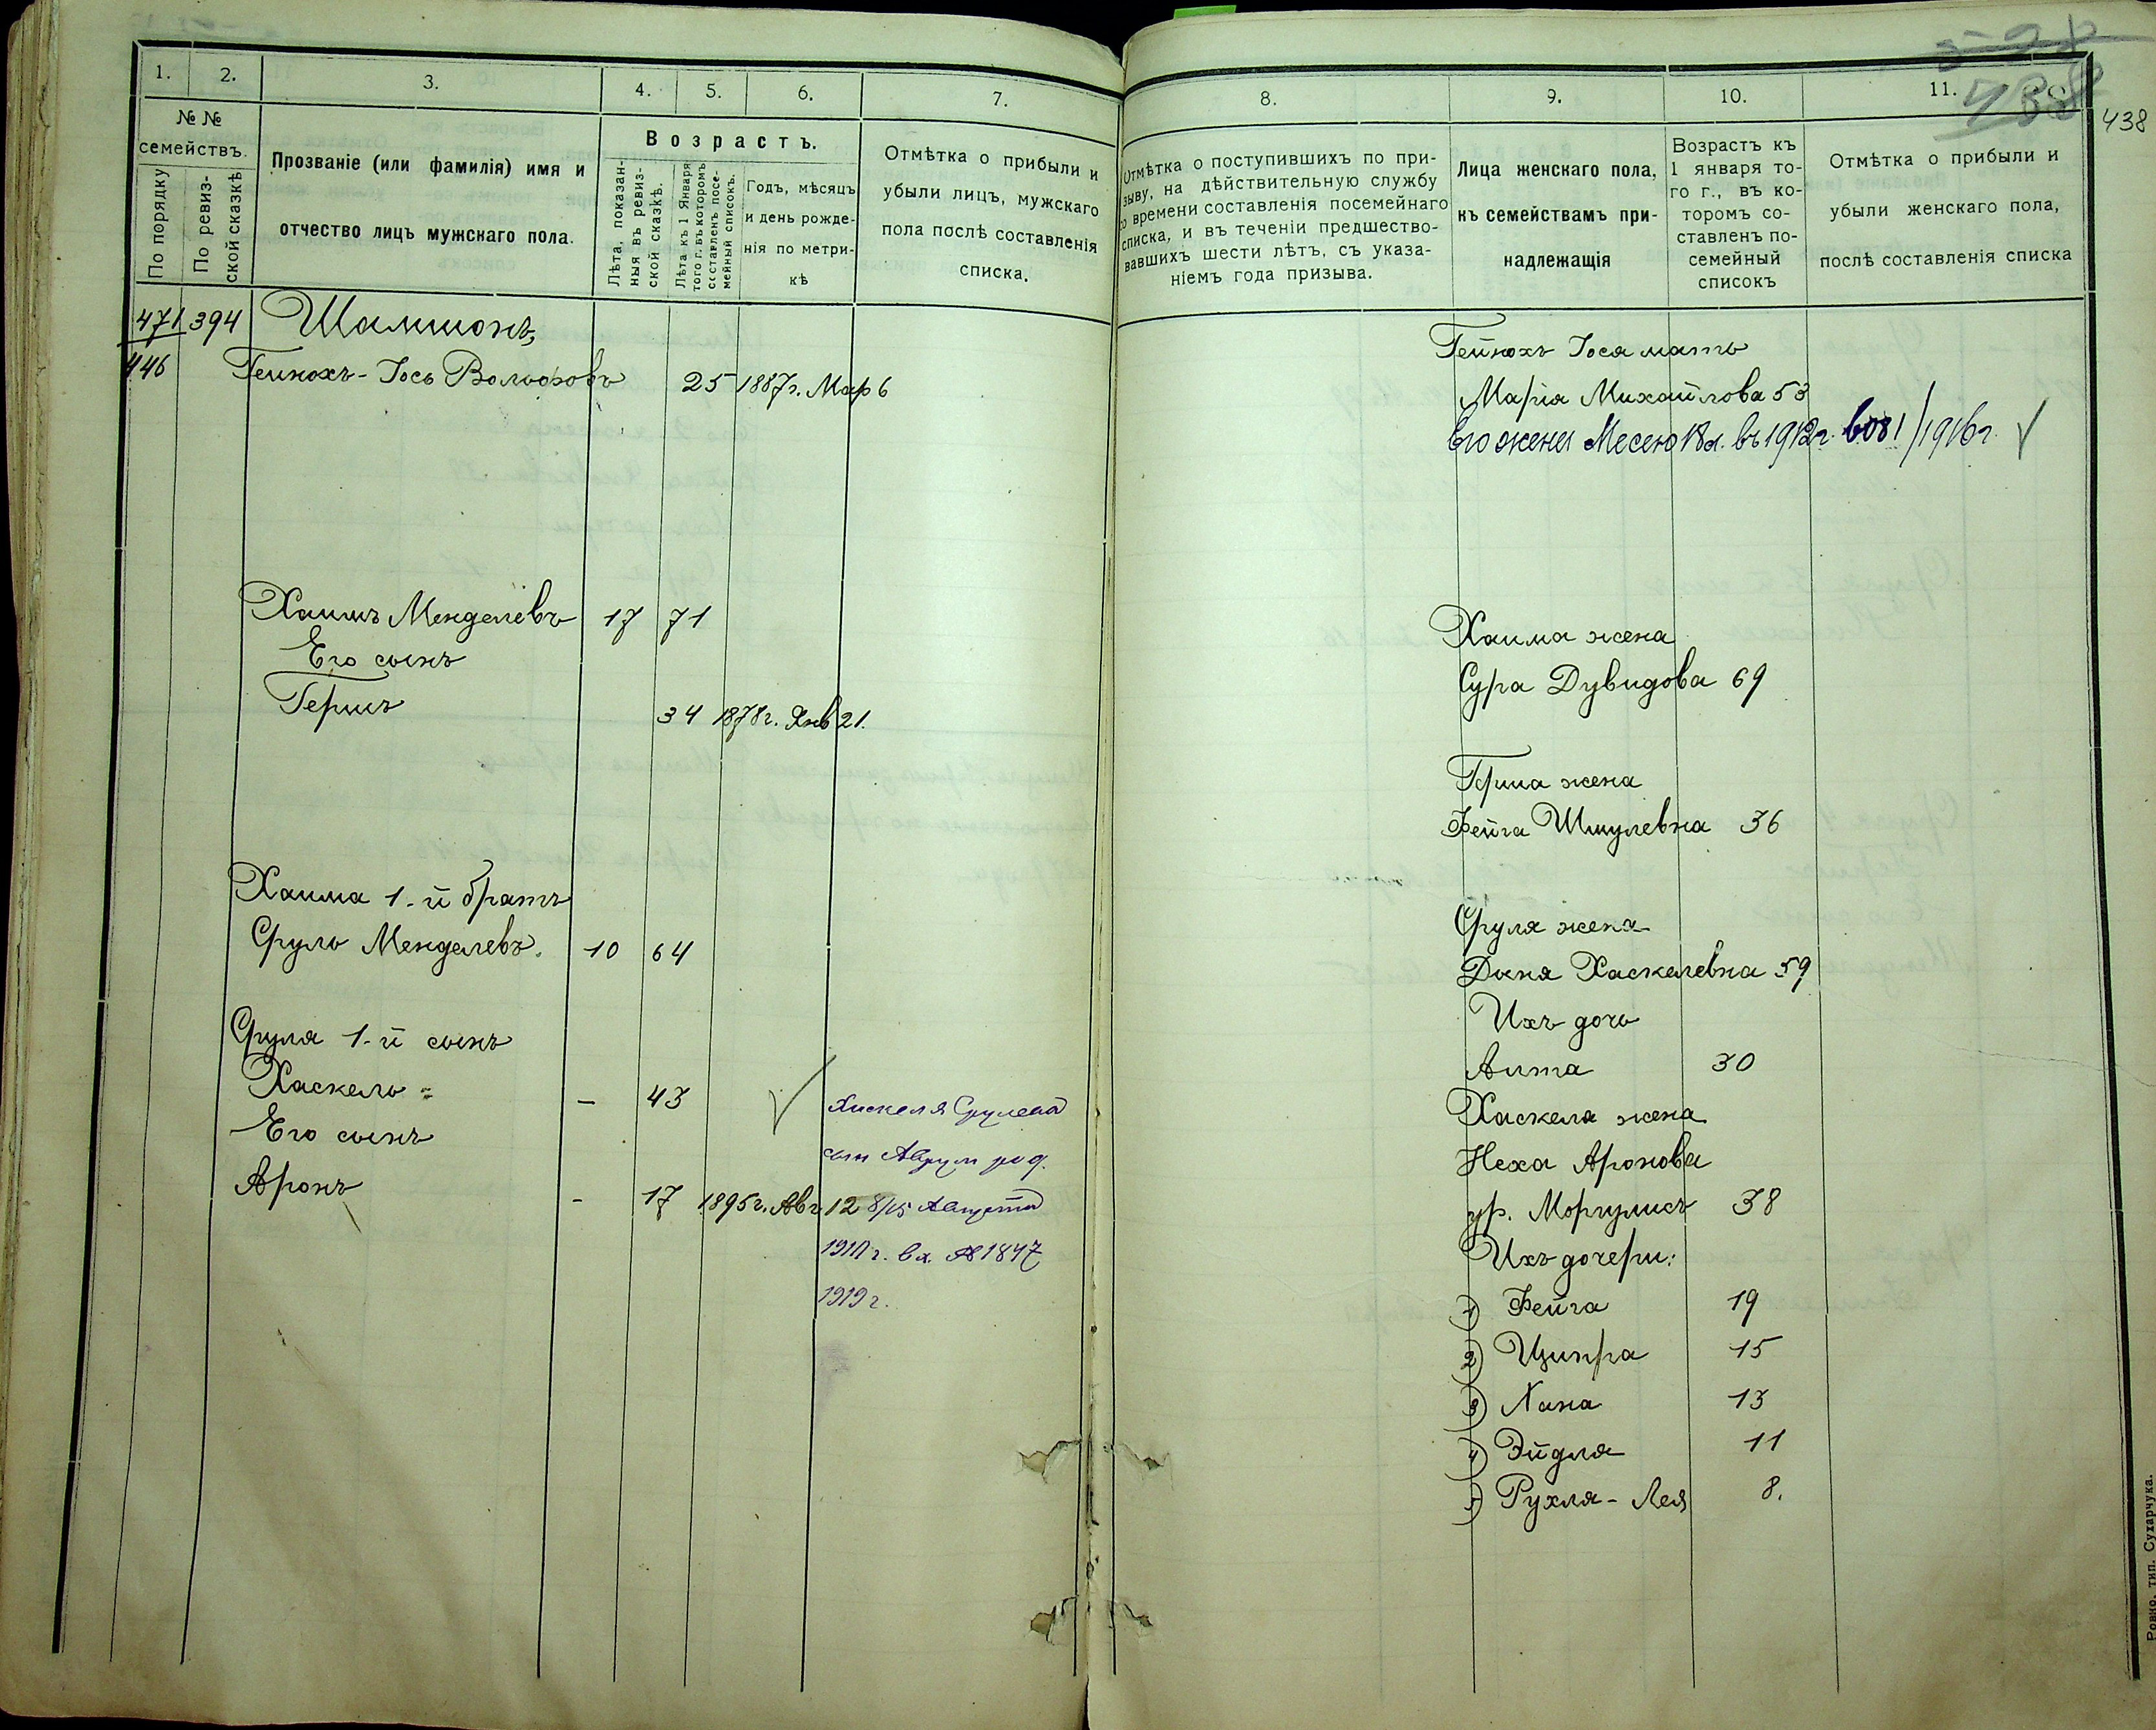 438
438
1. 2. 3. 4. 5. 6. 7.
№ №
семействъ.
По порядку
По ревиз-
ской сказкѣ
Прозваніе (или фамилія) имя и
отчество лицъ мужскаго пола.
Возрастъ.
Лѣта, показан-
ныя въ ревиз-
ской сказкѣ.
Лѣта къ 1 Января
того г. въ которомъ
составленъ посе-
мейный списокъ.
Годъ, мѣсяцъ
и день рожде-
нія по метри-
кѣ
Отмѣтка о прибыли и
убыли лицъ, мужскаго
пола послѣ составленія
списка.
471 394 Шамшонъ,
446 Гейнохъ-Іось Вольфовъ 25 1887г. Мар 6
Хаимъ Менделевъ 17 71
Его сынъ
Гершъ 34 1878г. Янв 21.
Хаима 1-й братъ
Сруль Менделевъ. 10 64
Сруля 1-й сынъ
Хаскель - 43
Его сынъ
Аронъ - 17 1895г. Авг 12
Хаскеля Срулева
сын Аврум род.
8/15 Августа
1911 г. вх. № 1847
1919 г.
8. 9. 10. 11.
Отмѣтка о поступившихъ по при-
зыву, на дѣйствительную службу
со времени составленія посемейнаго
списка, и въ теченіи предшество-
вавшихъ шести лѣтъ, съ указа-
ніемъ года призыва.
Лица женскаго пола,
къ семействамъ при-
надлежащія
Возрастъ къ
1 января то-
го г., въ ко-
торомъ со-
ставленъ по-
семейный
списокъ
Отмѣтка о прибыли и
убыли женскаго пола,
послѣ составленія списка
Гейнохъ Іося мать
Марія Михайлова 53
Его жена 18 л. въ 1912г. /1916г.
Хаима жена
Сура Дувидова 69
Герша жена
Фейга Шмулевна 36
Сруля жена
Доня Хаскелевна 59
Ихъ дочь
Алта 30
Хаскеля жена
Неха Аронова
ур. Моргулисъ 38
Ихъ дочери:
1) Фейга 19
2) Ципра 15
3) Хана 13
4) Эйдля 11
5) Рухля-Лея 8.
Ровно, тип. Сухарчука.